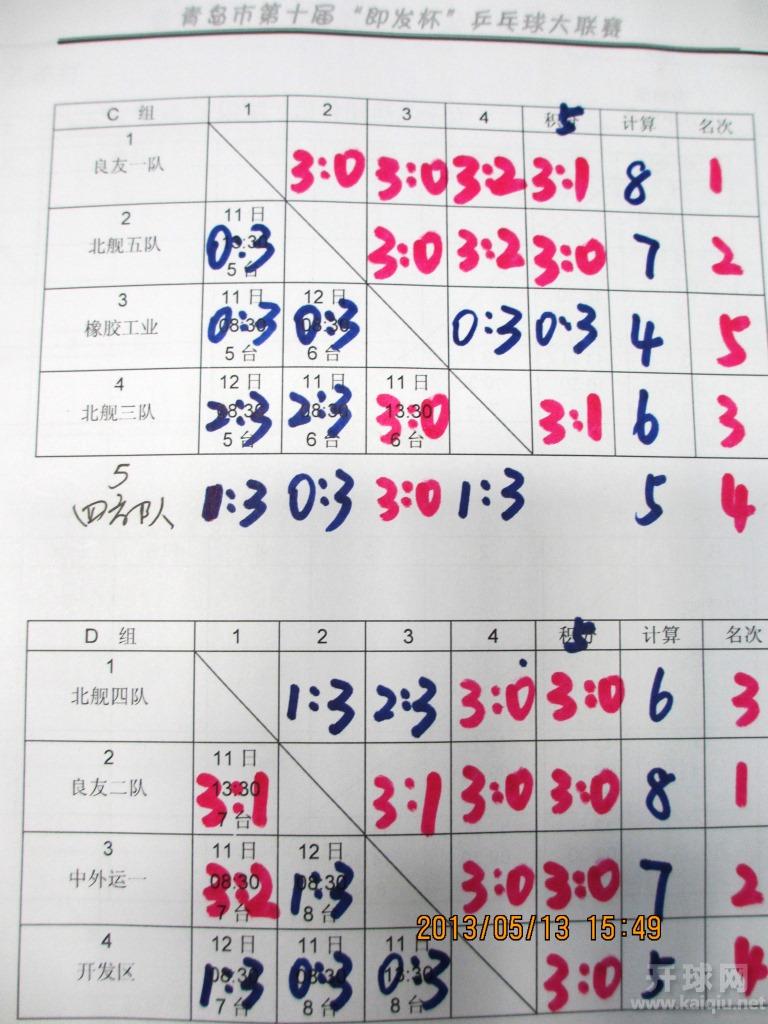 青岛市第十届“即发杯”乒乓球大联赛
C 组 1 2 3 4 积分 5 计算 名次
1
良友一队 3:0 3:0 3:2 3:1 8 1
2
北舰五队
11 日
13:30
5 台
0:3 3:0 3:2 3:0 7 2
3
橡胶工业
11 日
08:30
5 台
0:3
12 日
08:30
6 台
0:3 0:3 0:3 4 5
4
北舰三队
12 日
08:30
5 台
2:3
11 日
08:30
6 台
2:3
11 日
13:30
6 台
3:0 3:1 6 3
5
四方队 1:3 0:3 3:0 1:3 5 4
D 组 1 2 3 4 积分 5 计算 名次
1
北舰四队 1:3 2:3 3:0 3:0 6 3
2
良友二队
11 日
13:30
7 台
3:1 3:1 3:0 3:0 8 1
3
中外运一
11 日
08:30
7 台
3:2
12 日
08:30
8 台
1:3 3:0 3:0 7 2
4
开发区
12 日
08:30
7 台
1:3
11 日
08:30
8 台
0:3
11 日
13:30
8 台
0:3 3:0 5 4
2013/05/13 15:49
开球网
www.kaiqiu.net